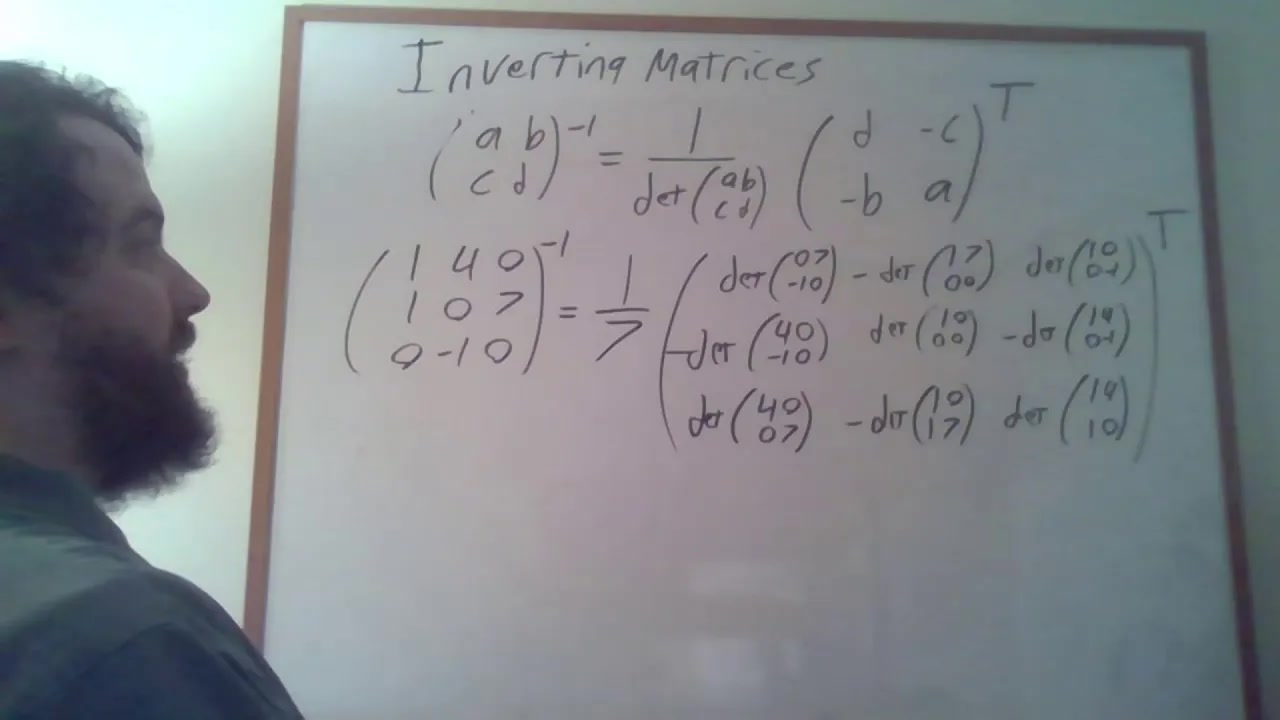 Inverting Matrices
( a b ; c d )^-1 = 1 / det( a b ; c d ) ( d -c ; -b a )^T
( 1 4 0 ; 1 0 7 ; 0 -1 0 )^-1 = 1 / 7 ( det( 0 7 ; -1 0 ) - det( 1 7 ; 0 0 ) det( 1 0 ; 0 -1 ) ; - det( 4 0 ; -1 0 ) det( 1 0 ; 0 0 ) - det( 1 4 ; 0 -1 ) ; det( 4 0 ; 0 7 ) - det( 1 0 ; 1 7 ) det( 1 4 ; 1 0 ) )^T